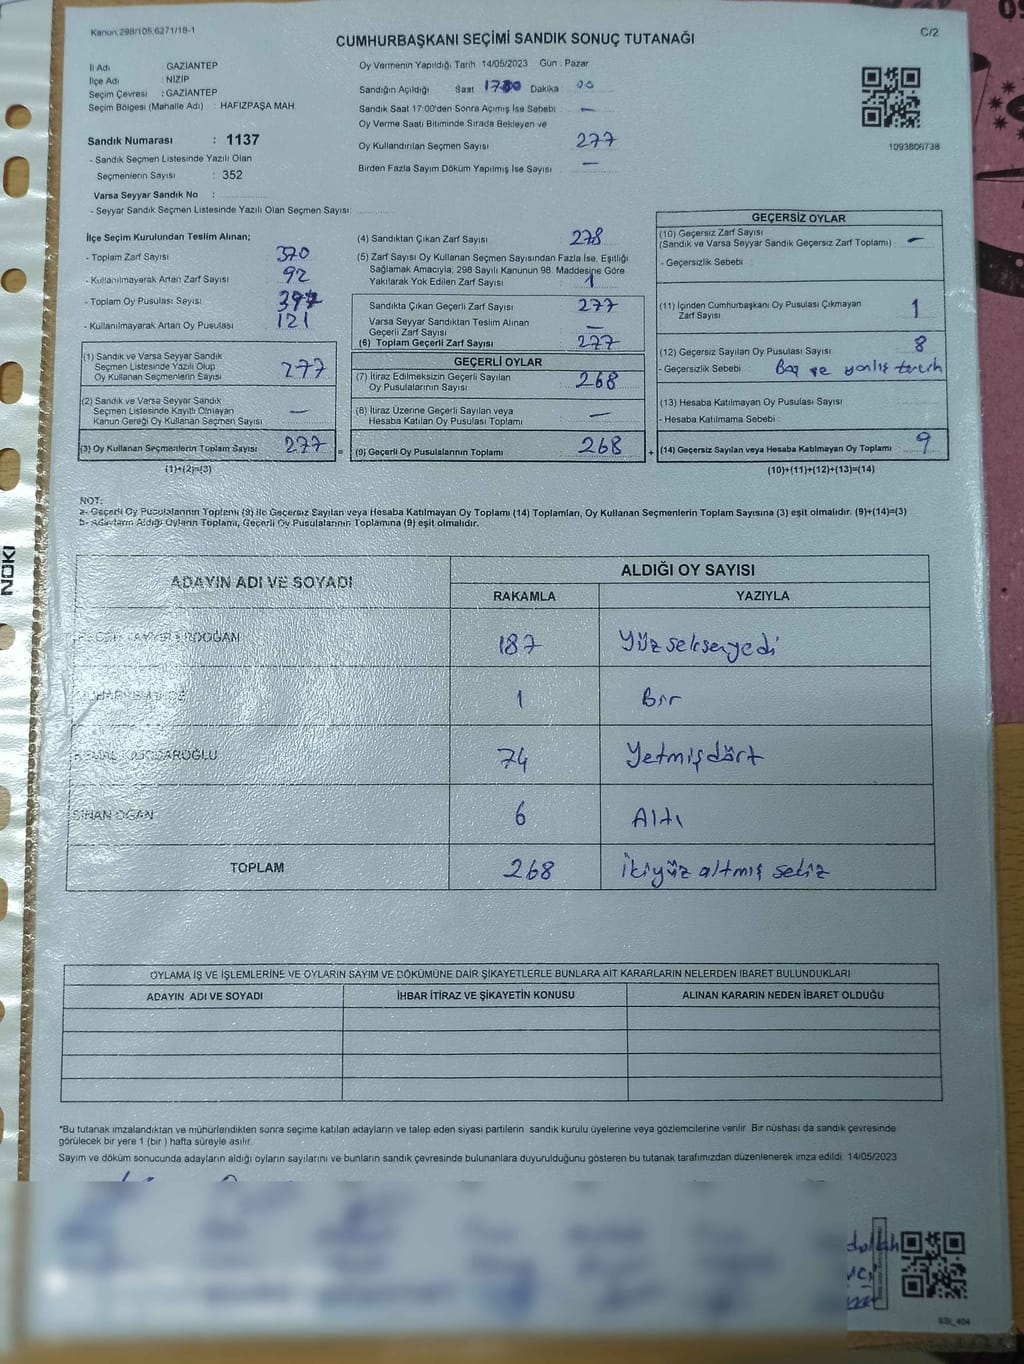 Kanun.298/105,6271/18-1
C/2
CUMHURBAŞKANI SEÇİMİ SANDIK SONUÇ TUTANAĞI
İl Adı : GAZİANTEP
İlçe Adı : NİZİP
Seçim Çevresi : GAZİANTEP
Seçim Bölgesi (Mahalle Adı) : HAFIZPAŞA MAH.
Oy Vermenin Yapıldığı Tarih 14/05/2023 Gün : Pazar
Sandığın Açıldığı Saat 17:00 Dakika 00
Sandık Saat 17:00'den Sonra Açılmış İse Sebebi : —
Oy Verme Saati Bitiminde Sırada Bekleyen ve
Oy Kullandırılan Seçmen Sayısı 277
Birden Fazla Sayım Döküm Yapılmış İse Sayısı : —
1093806738
Sandık Numarası : 1137
- Sandık Seçmen Listesinde Yazılı Olan
Seçmenlerin Sayısı : 352
Varsa Seyyar Sandık No :
- Seyyar Sandık Seçmen Listesinde Yazılı Olan Seçmen Sayısı:
İlçe Seçim Kurulundan Teslim Alınan;
- Toplam Zarf Sayısı 370
- Kullanılmayarak Artan Zarf Sayısı : 92
- Toplam Oy Pusulası Sayısı
- Kullanılmayarak Artan Oy Pusulası 121
(1) Sandık ve Varsa Seyyar Sandık
Seçmen Listesinde Yazılı Olup
Oy Kullanan Seçmenlerin Sayısı : 277
(2) Sandık ve Varsa Seyyar Sandık
Seçmen Listesinde Kayıtlı Olmayan
Kanun Gereği Oy Kullanan Seçmen Sayısı : —
(3) Oy Kullanan Seçmenlerin Toplam Sayısı : 277
(1)+(2)=(3)
(4) Sandıktan Çıkan Zarf Sayısı : 278
(5) Zarf Sayısı Oy Kullanan Seçmen Sayısından Fazla İse, Eşitliği
Sağlamak Amacıyla; 298 Sayılı Kanunun 98. Maddesine Göre
Yakılarak Yok Edilen Zarf Sayısı : 1
Sandıkta Çıkan Geçerli Zarf Sayısı : 277
Varsa Seyyar Sandıktan Teslim Alınan
Geçerli Zarf Sayısı : —
(6) Toplam Geçerli Zarf Sayısı : 277
GEÇERLİ OYLAR
(7) İtiraz Edilmeksizin Geçerli Sayılan
Oy Pusulalarının Sayısı : 268
(8) İtiraz Üzerine Geçerli Sayılan veya
Hesaba Katılan Oy Pusulası Toplamı : —
= (9) Geçerli Oy Pusulalarının Toplamı : 268
GEÇERSİZ OYLAR
(10) Geçersiz Zarf Sayısı : —
(Sandık ve Varsa Seyyar Sandık Geçersiz Zarf Toplamı)
- Geçersizlik Sebebi :
(11) İçinden Cumhurbaşkanı Oy Pusulası Çıkmayan
Zarf Sayısı : 1
(12) Geçersiz Sayılan Oy Pusulası Sayısı : 8
- Geçersizlik Sebebi : Boş ve yanlış tercih
(13) Hesaba Katılmayan Oy Pusulası Sayısı :
- Hesaba Katılmama Sebebi :
+ (14) Geçersiz Sayılan veya Hesaba Katılmayan Oy Toplamı : 9
(10)+(11)+(12)+(13)=(14)
NOT:
a- Geçerli Oy Pusulalarının Toplamı (9) ile Geçersiz Sayılan veya Hesaba Katılmayan Oy Toplamı (14) Toplamları, Oy Kullanan Seçmenlerin Toplam Sayısına (3) eşit olmalıdır. (9)+(14)=(3)
b- Adayların Aldığı Oyların Toplamı, Geçerli Oy Pusulalarının Toplamına (9) eşit olmalıdır.
ADAYIN ADI VE SOYADI
ALDIĞI OY SAYISI
RAKAMLA YAZIYLA
ERDOĞAN 187 Yüzseksenyedi
1 Bir
74 Yetmişdört
SİNAN OĞAN 6 Altı
TOPLAM 268 İkiyüz altmış sekiz
OYLAMA İŞ VE İŞLEMLERİNE VE OYLARIN SAYIM VE DÖKÜMÜNE DAİR ŞİKAYETLERLE BUNLARA AİT KARARLARIN NELERDEN İBARET BULUNDUKLARI
ADAYIN ADI VE SOYADI İHBAR İTİRAZ VE ŞİKAYETİN KONUSU ALINAN KARARIN NEDEN İBARET OLDUĞU
*Bu tutanak imzalandıktan ve mühürlendikten sonra seçime katılan adayların ve talep eden siyasi partilerin sandık kurulu üyelerine veya gözlemcilerine verilir. Bir nüshası da sandık çevresinde
görülecek bir yere 1 (bir) hafta süreyle asılır.
Sayım ve döküm sonucunda adayların aldığı oyların sayılarını ve bunların sandık çevresinde bulunanlara duyurulduğunu gösteren bu tutanak tarafımızdan düzenlenerek imza edildi. 14/05/2023
SSI_404
NOKI